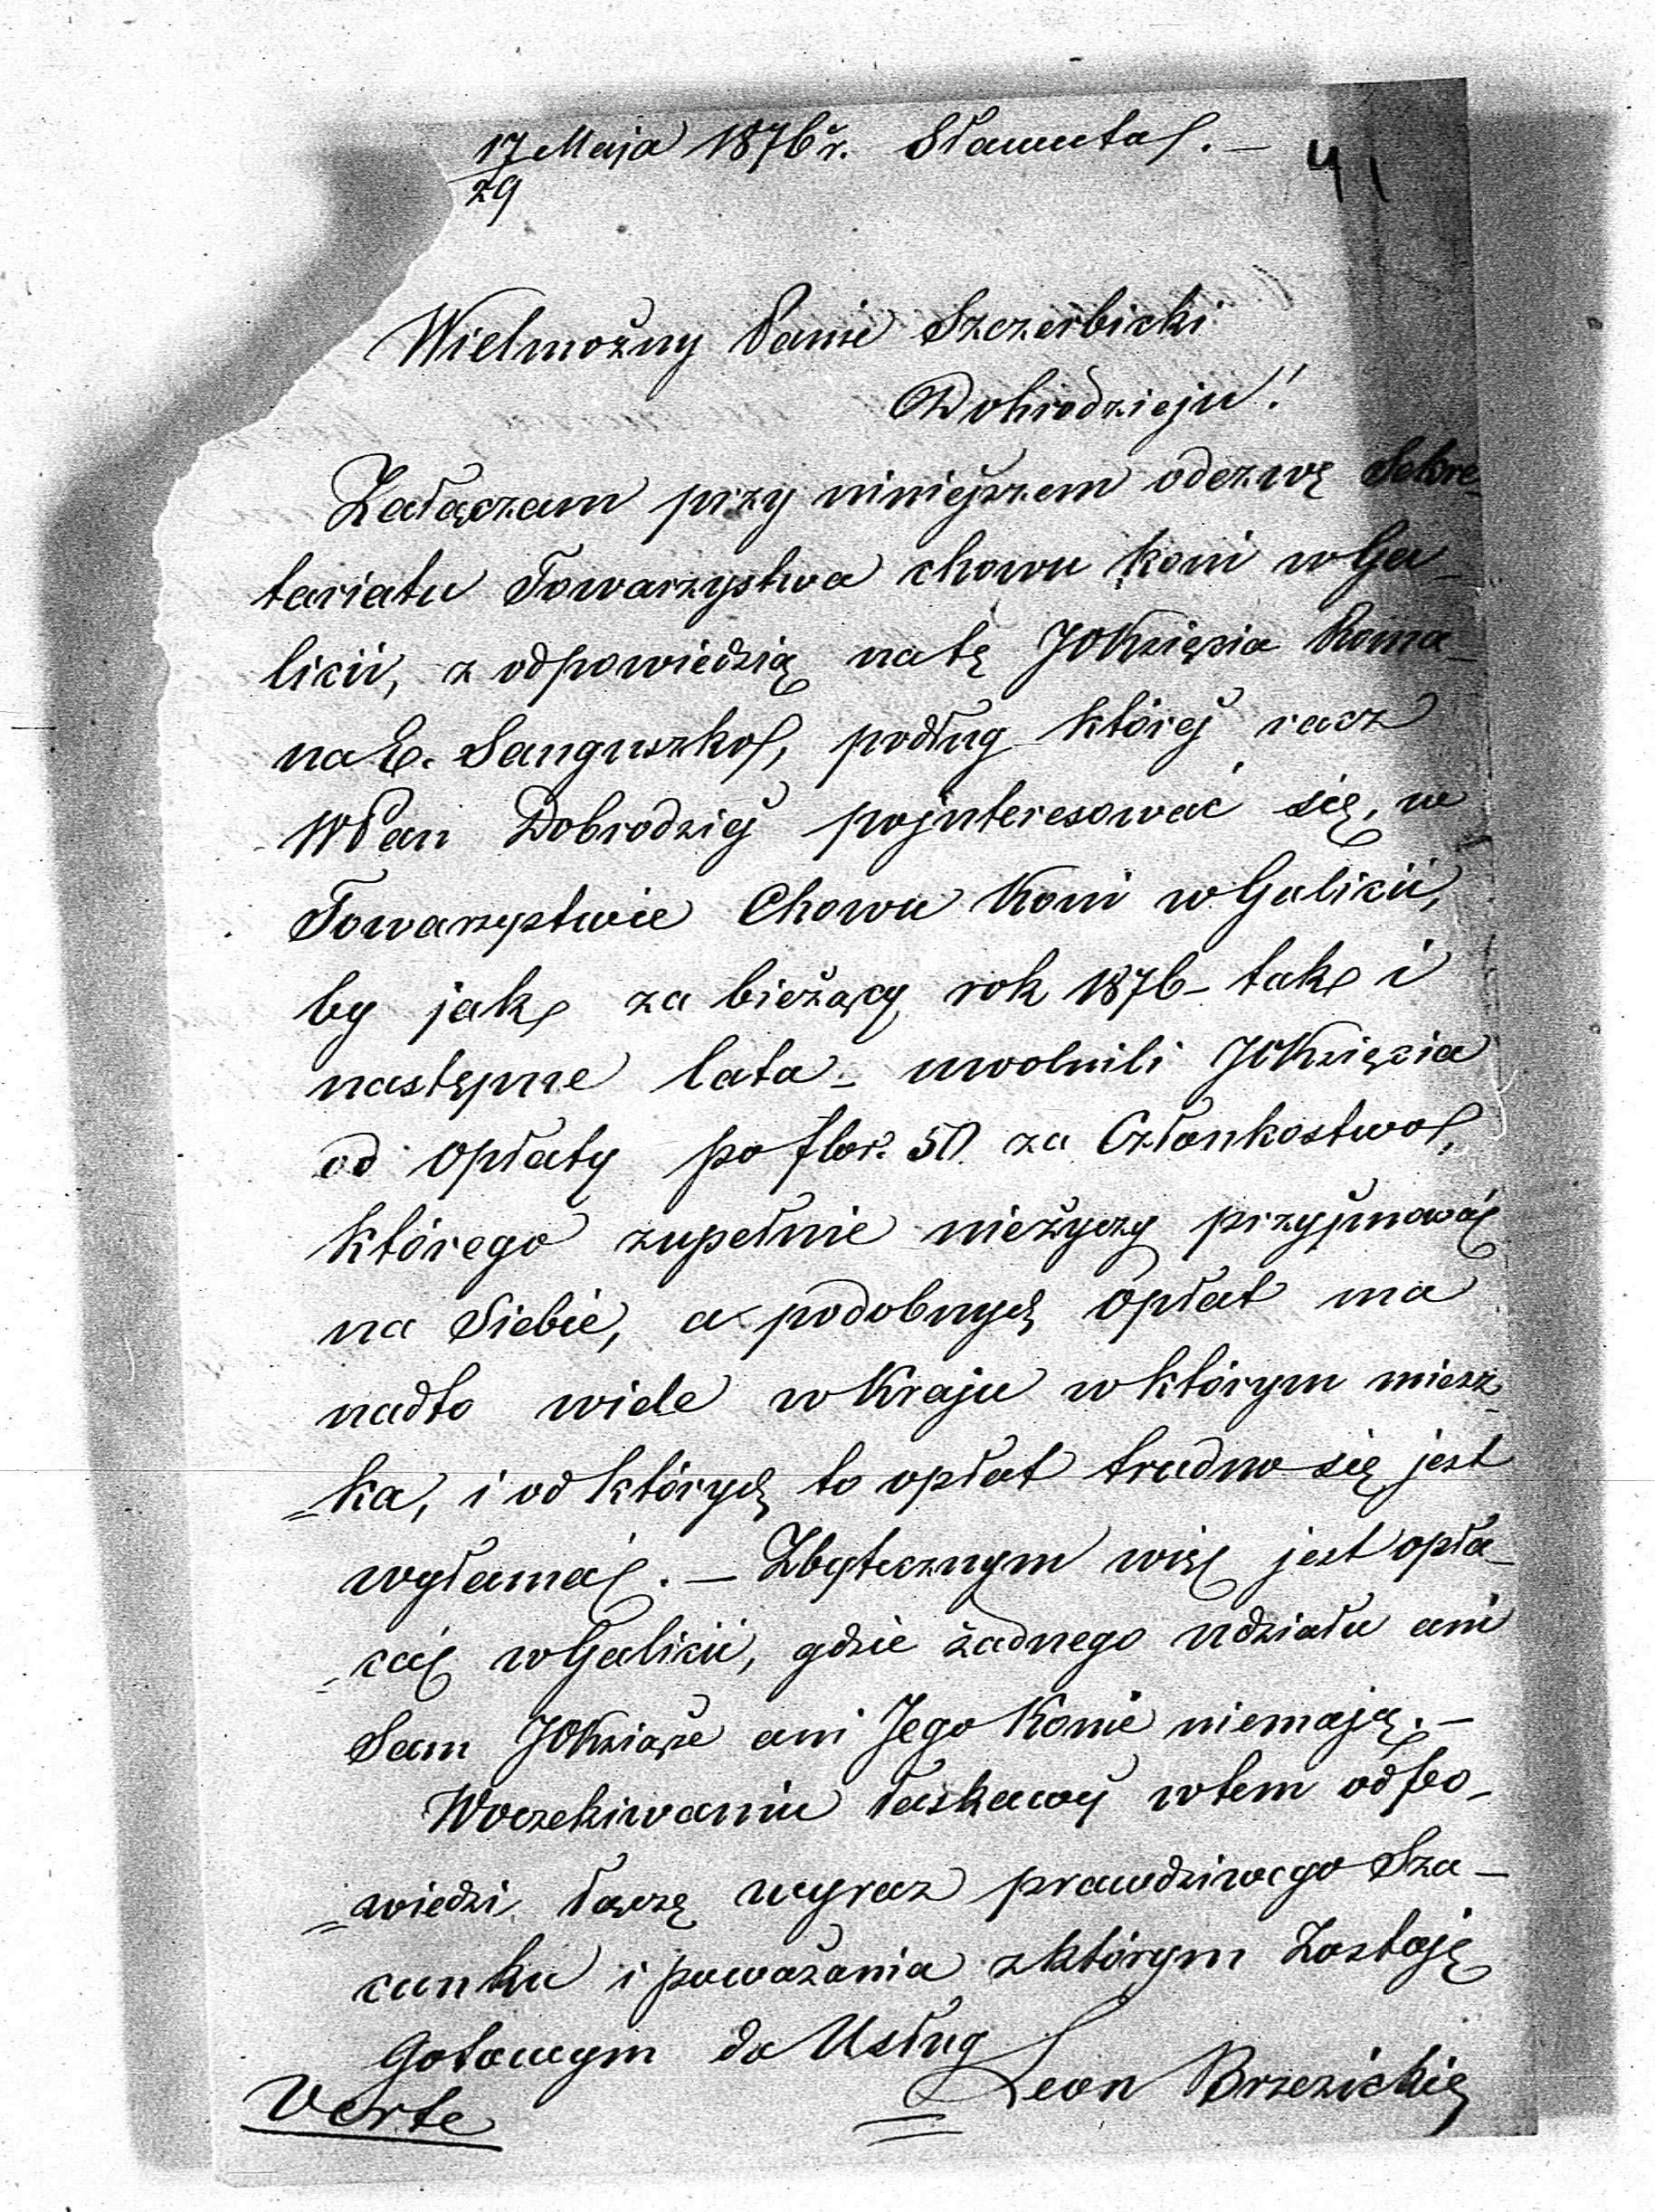 17/29 Maja 1876 r. Sławuta. —
41
Wielmożny Panie Szczerbicki
Dobrodzieju!
Załączam przy niniejszem odezwę Sekre-
tariatu Towarzystwa chowu koni w Ga-
licii, z odpowiedzią na tę JOKsięcia Roma-
na E. Sanguszko, podług której racz
WPan Dobrodziej pojnteresować się, w
Towarzystwie Chowu Koni w Galicii,
by jak za bieżący rok 1876 - tak i
następne lata - uwolnili JOKsięcia
od opłaty po flor. 50. za Członkostwo,
którego zupełnie nieżyczy przyjmować
na Siebie, a podobnych opłat ma
nadto wiele w Kraju w którym miesz-
=ka, i od których to opłat trudno się jest
wyłamać. — Zbytecznym więc jest opła-
=cać w Galicii, gdzie żadnego udziału ani
Sam JOKsiąże ani Jego Konie niemają. —
W oczekiwaniu łaskawej w tem odpo-
=wiedzi, łączę wyraz prawdziwego Sza-
cunku i poważania z którym Zostaję
Gotowym do Usług
Leon Brzezicki
Verte